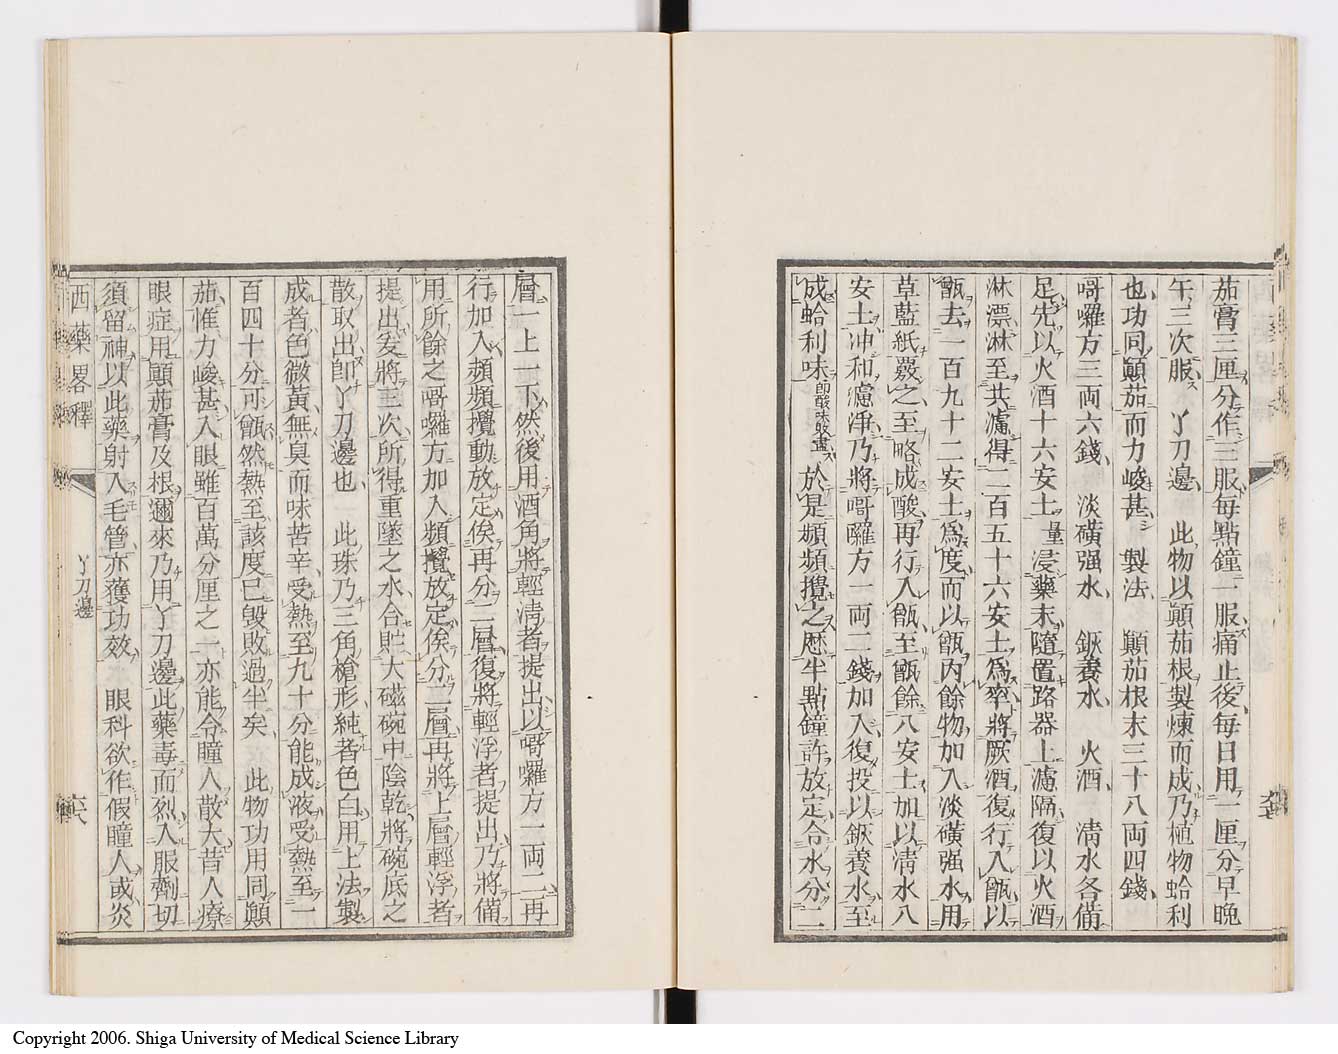 茄膏三厘分作三服每點鐘一服痛止後每日用一厘分早晩
午三次服　丫刀邊　此物以顚茄根製煉而成乃植物蛤利
也功同顚茄而力峻甚　製法　顚茄根末三十八両四錢
哥囉方三両六錢　淡磺强水　鉄養水　火酒　清水各備
足先以火酒十六安士量浸藥末隨置路器上濾隔復以火酒
淋漂淋至共濾得二百五十六安士爲率將厥酒復行入甑以
甑去一百九十二安士爲度而以甑內餘物加入淡磺强水用
草藍紙覈之至略成酸再行入甑至甑餘八安士加以清水八
安士冲和濾淨乃將哥囉方一両二錢加入復投以鉄養水至
成蛤利味即酸味收盡於是頻頻攪之歴半點鐘許放定令水分二
層一上一下然後用酒角將輕淸者提出以哥囉方一両二再
行加入頻頻攪動放定俟再分二層復將輕浮者提出乃將備
用所餘之哥囉方加入頻攪放定俟分二層再將上層輕浮者
提出爰將三次所得重墜之水合貯大磁碗中陰乾將碗底之
散取出卽丫刀邊也　此珠乃三角槍形純者色白用上法製
成者色微黃無臭而味苦辛受熱至九十分能成液受熱至一
百四十分可甑然熱至該度已毀敗過半矣　此物功用同顚
茄惟力峻甚入眼雖百萬分厘之一亦能令瞳人散大昔人療
眼症用顚茄膏及根邇來乃用丫刀邊此藥毒而烈入服劑切
須留神以此藥射入毛管亦獲功效　眼科欲作假瞳人或炎
西藥畧釋　丫刀邊　六